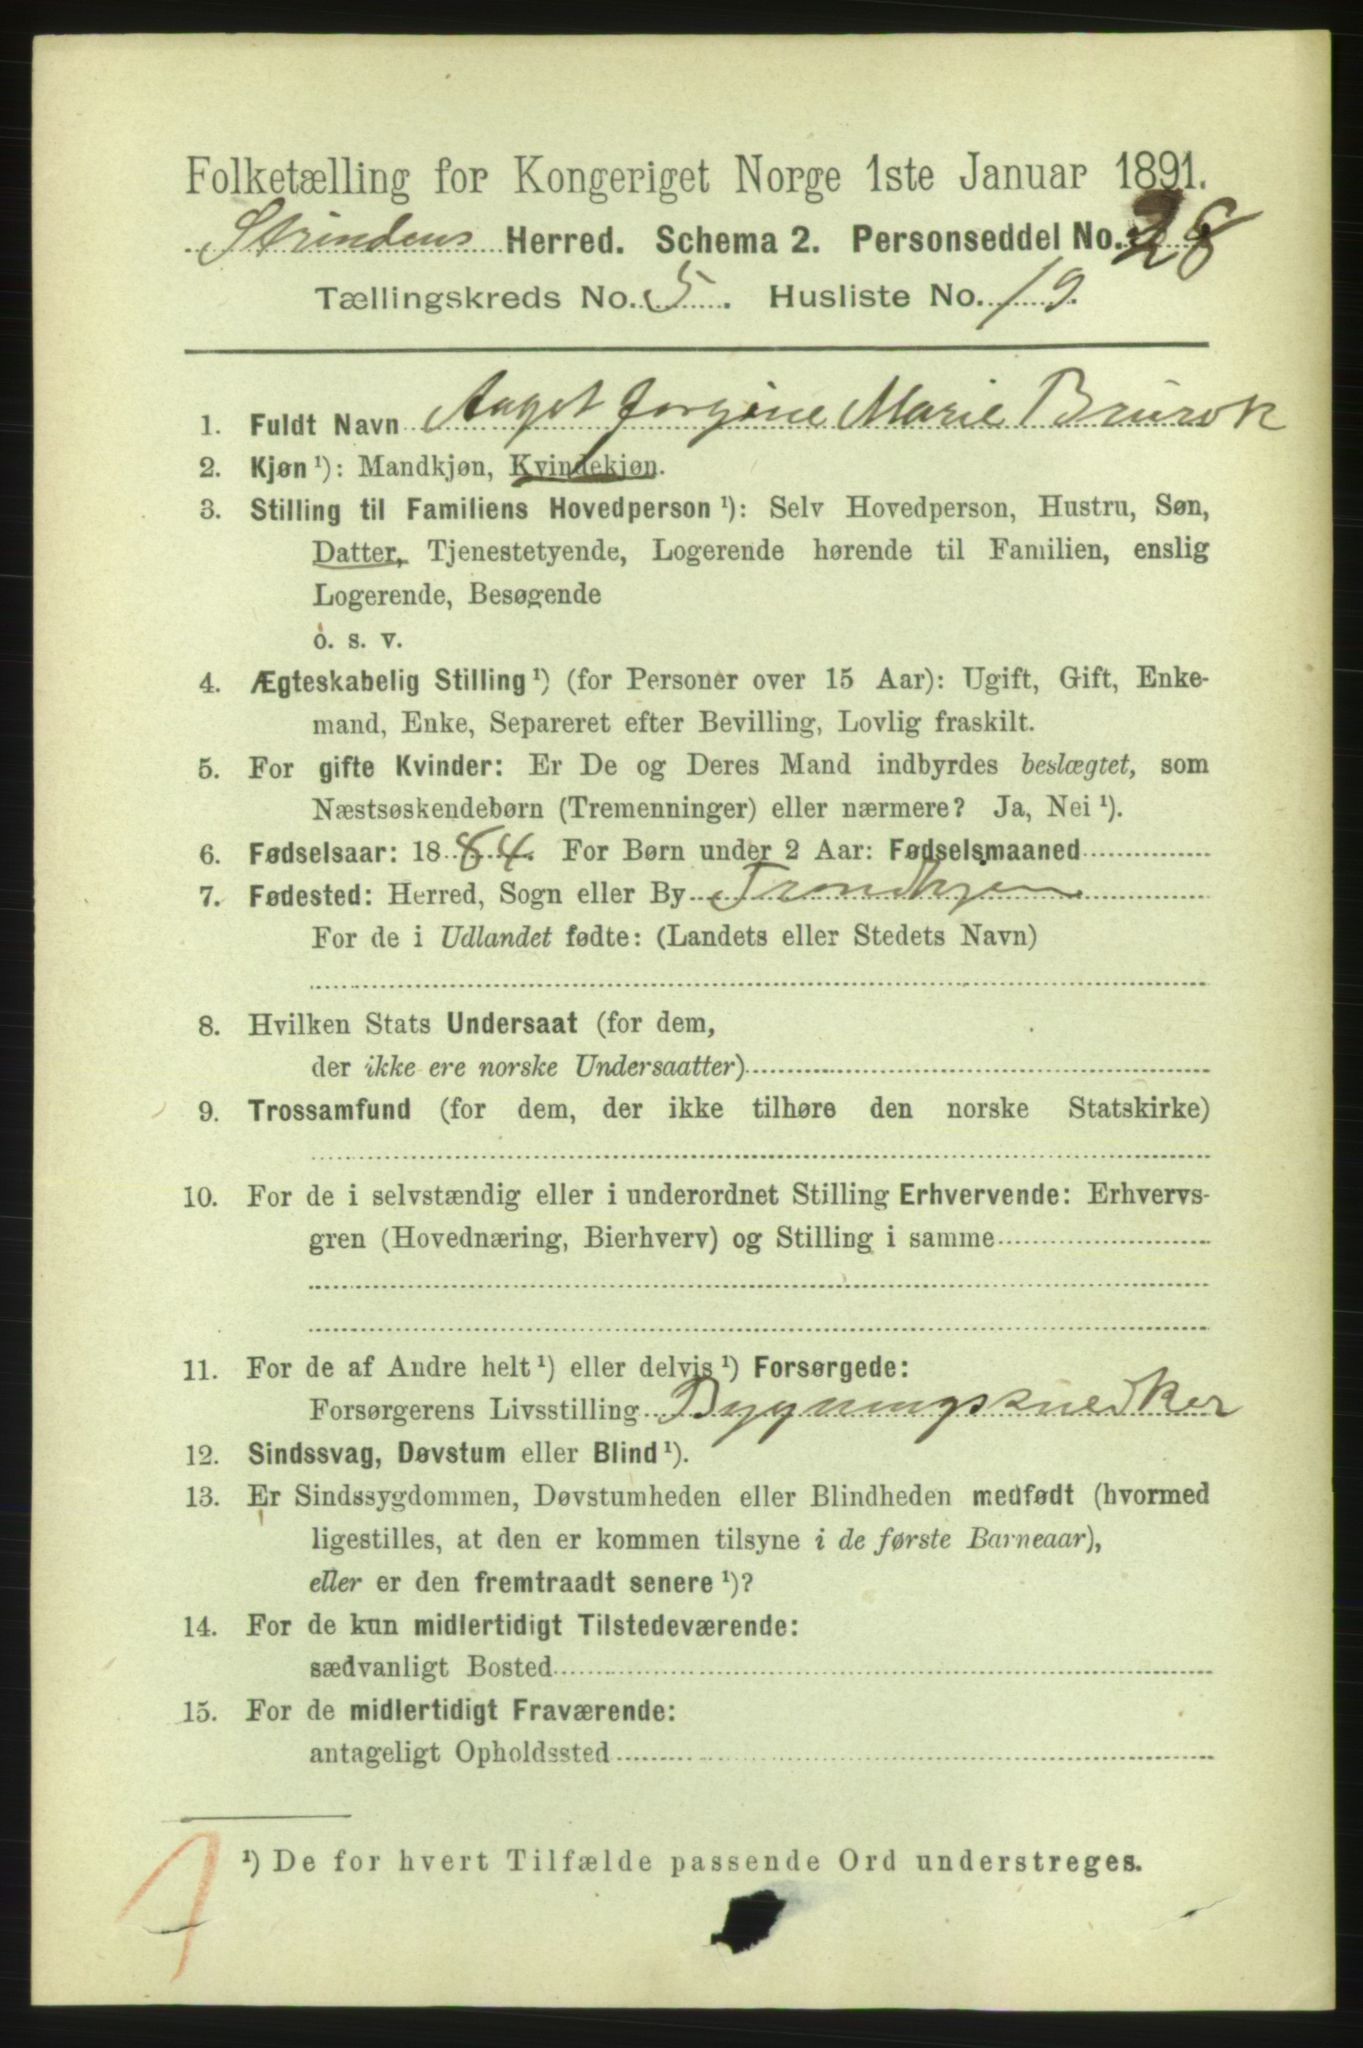 Folketælling for Kongeriget Norge 1ste Januar 1891.
Strindens Herred. Schema 2. Personseddel No. 28
Tællingskreds No. 5. Husliste No. 19.
1. Fuldt Navn Aagot Jorgine Marie Brurok
2. Kjøn ¹): Mandkjøn, Kvindekjøn.
3. Stilling til Familiens Hovedperson ¹): Selv Hovedperson, Hustru, Søn,
Datter, Tjenestetyende, Logerende hørende til Familien, enslig
Logerende, Besøgende
o. s. v.
4. Ægteskabelig Stilling ¹) (for Personer over 15 Aar): Ugift, Gift, Enke-
mand, Enke, Separeret efter Bevilling, Lovlig fraskilt.
5. For gifte Kvinder: Er De og Deres Mand indbyrdes beslægtet, som
Næstsøskendebørn (Tremenninger) eller nærmere? Ja, Nei ¹).
6. Fødselsaar: 1884. For Børn under 2 Aar: Fødselsmaaned
7. Fødested: Herred, Sogn eller By Trondhjem
For de i Udlandet fødte: (Landets eller Stedets Navn)
8. Hvilken Stats Undersaat (for dem,
der ikke ere norske Undersaatter)
9. Trossamfund (for dem, der ikke tilhøre den norske Statskirke)
10. For de i selvstændig eller i underordnet Stilling Erhvervende: Erhvervs-
gren (Hovednæring, Bierhverv) og Stilling i samme
11. For de af Andre helt ¹) eller delvis ¹) Forsørgede:
Forsørgerens Livsstilling Bygningssnedker
12. Sindssvag, Døvstum eller Blind ¹).
13. Er Sindssygdommen, Døvstumheden eller Blindheden medfødt (hvormed
ligestilles, at den er kommen tilsyne i de første Barneaar),
eller er den fremtraadt senere ¹)?
14. For de kun midlertidigt Tilstedeværende:
sædvanligt Bosted
15. For de midlertidigt Fraværende:
antageligt Opholdssted
¹) De for hvert Tilfælde passende Ord understreges.